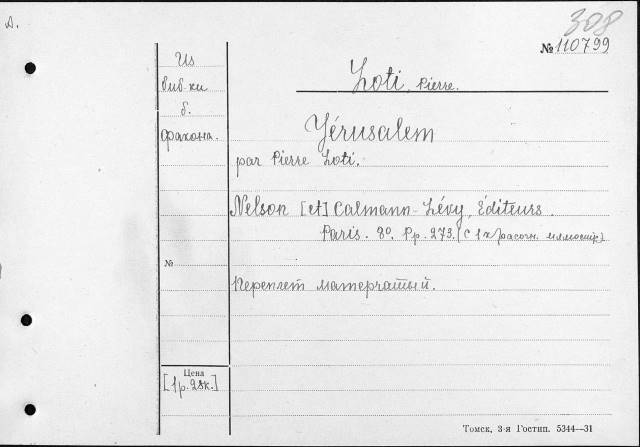 D.
308
№ 110799
Из
биб-ки
б.
фракона.
Loti, Pierre.
Jérusalem
par Pierre Loti.
Nelson [et] Calmann-Lévy, Éditeurs.
Paris. 8º. Pp. 273. (с 1 красочн. иллюстр.)
№
Переплет матерчатый.
Цена
[1р. 28к.]
Томск, 3-я Гостип. 5344—31